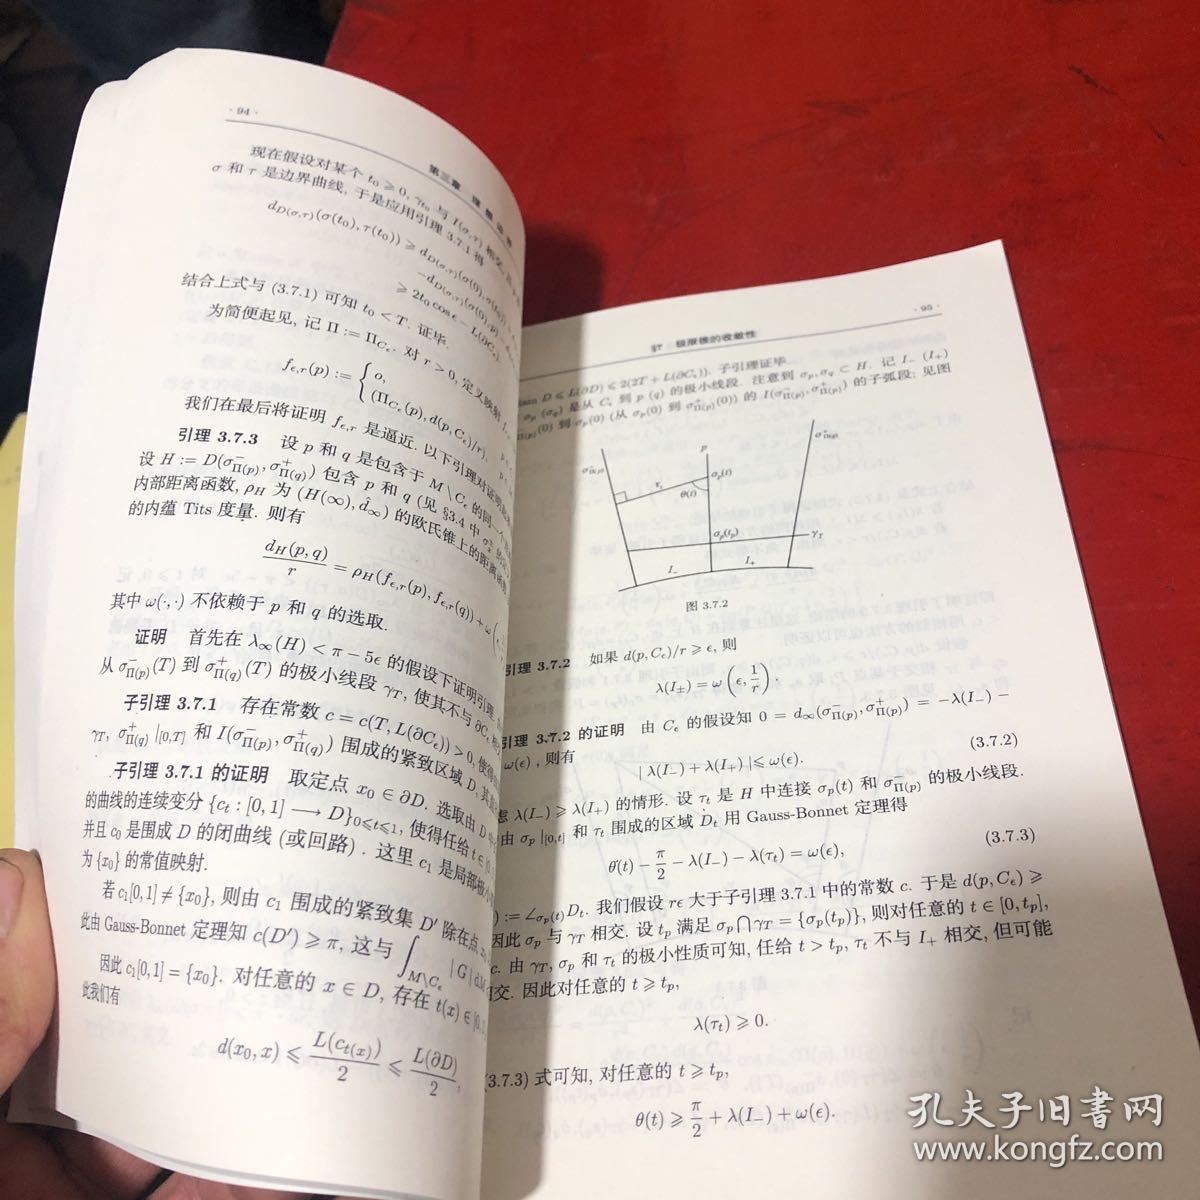 · 94 ·
第三章 理想边界
现在假设对某个 t₀ ⩾ 0, γ_{t₀} 与 I(σ,τ) 相交
σ 和 τ 是边界曲线, 于是应用引理 3.7.1 得
d_{D(σ,τ)}(σ(t₀), τ(t₀)) ⩾ d_{D(σ,τ)}(σ(0), σ(t₀))
−d_{D(σ,τ)}(σ(0), p)
⩾ 2t₀ cos ϵ − L(∂C_ϵ).
结合上式与 (3.7.1) 可知 t₀ < T. 证毕.
为简便起见, 记 Π := Π_{C_ϵ}. 对 r > 0, 定义映射
f_{ϵ,r}(p) := { o,
(Π_{C_ϵ}(p), d(p, C_ϵ)/r).
我们在最后将证明 f_{ϵ,r} 是逼近. 以下引理对证明
引理 3.7.3 设 p 和 q 是包含于 M \ C_ϵ 的同一个
设 H := D(σ⁻_{Π(p)}, σ⁺_{Π(q)}) 包含 p 和 q (见 §3.4 中
内部距离函数, ρ_H 为 (H(∞), d̂_∞) 的欧氏锥上的距离函数
的内蕴 Tits 度量. 则有
d_H(p, q)/r = ρ_H(f_{ϵ,r}(p), f_{ϵ,r}(q)) + ω
其中 ω(·,·) 不依赖于 p 和 q 的选取.
证明 首先在 λ_∞(H) < π − 5ϵ 的假设下证明引理.
从 σ⁻_{Π(p)}(T) 到 σ⁺_{Π(q)}(T) 的极小线段 γ_T, 使其不与 ∂C_ϵ
子引理 3.7.1 存在常数 c = c(T, L(∂C_ϵ)) > 0, 使得
γ_T, σ⁺_{Π(q)} |_{[0,T]} 和 I(σ⁻_{Π(p)}, σ⁺_{Π(q)}) 围成的紧致区域 D, 其
子引理 3.7.1 的证明 取定点 x₀ ∈ ∂D. 选取由 D 中
的曲线的连续变分 {c_t : [0,1] ⟶ D}_{0⩽t⩽1}, 使得任给 t ∈ [0,
并且 c₀ 是围成 D 的闭曲线 (或回路). 这里 c₁ 是局部极小
为 {x₀} 的常值映射.
若 c₁[0,1] ≠ {x₀}, 则由 c₁ 围成的紧致集 D′ 除在点 x₀
此由 Gauss-Bonnet 定理知 c(D′) ⩾ π, 这与 ∫_{M\C_ϵ} | G | dM
因此 c₁[0,1] = {x₀}. 对任意的 x ∈ D, 存在 t(x) ∈ [0,
此我们有
d(x₀, x) ⩽ L(c_{t(x)})/2 ⩽ L(∂D)/2,
· 95 ·
§7 极限锥的收敛性
diam D ⩽ L(∂D) ⩽ 2(2T + L(∂C_ϵ)). 子引理证毕.
σ_p (σ_q) 是从 C_ϵ 到 p (q) 的极小线段. 注意到 σ_p, σ_q ⊂ H. 记 I₋ (I₊)
σ⁻_{Π(p)}(0) 到 σ_p(0) (从 σ_p(0) 到 σ⁺_{Π(p)}(0)) 的 I(σ⁻_{Π(p)}, σ⁺_{Π(p)}) 的子弧段; 见图
σ⁻_{Π(p)}
p
σ⁺_{Π(p)}
σ_p(t)
τ_t
θ(t)
σ_p(t_p)
γ_T
I₋
I₊
图 3.7.2
引理 3.7.2 如果 d(p, C_ϵ)/r ⩾ ϵ, 则
λ(I_±) = ω(ϵ, 1/r).
引理 3.7.2 的证明 由 C_ϵ 的假设知 0 = d_∞(σ⁻_{Π(p)}, σ⁺_{Π(p)}) = −λ(I₋) −
ω(ϵ), 则有
| λ(I₋) + λ(I₊) |⩽ ω(ϵ). (3.7.2)
虑 λ(I₋) ⩾ λ(I₊) 的情形. 设 τ_t 是 H 中连接 σ_p(t) 和 σ⁻_{Π(p)} 的极小线段.
由 σ_p |_{[0,t]} 和 τ_t 围成的区域 D_t 用 Gauss-Bonnet 定理得
θ(t) − π/2 − λ(I₋) − λ(τ_t) = ω(ϵ), (3.7.3)
) := ∠_{σ_p(t)} D_t. 我们假设 rϵ 大于子引理 3.7.1 中的常数 c. 于是 d(p, C_ϵ) ⩾
c. 因此 σ_p 与 γ_T 相交. 设 t_p 满足 σ_p ⋂ γ_T = {σ_p(t_p)}, 则对任意的 t ∈ [0, t_p],
c. 由 γ_T, σ_p 和 τ_t 的极小性质可知, 任给 t > t_p, τ_t 不与 I₊ 相交, 但可能
相交. 因此对任意的 t ⩾ t_p,
λ(τ_t) ⩾ 0.
(3.7.3) 式可知, 对任意的 t ⩾ t_p,
θ(t) ⩾ π/2 + λ(I₋) + ω(ϵ).
孔夫子旧書网
www.kongfz.com